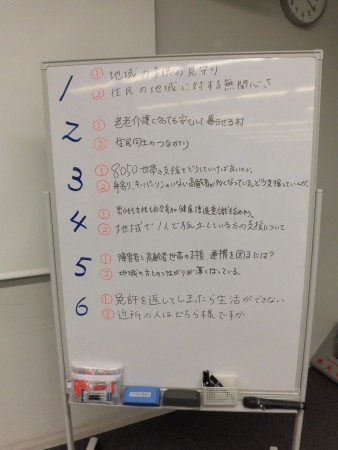 1 ① 地域の子供の見守り
② 住民の地域に対する無関心さ
2 ① 老老介護になっても安心して暮らせる村
② 住民同士のつながり
3 ① 8050世帯の支援をどうしていけば良いのか。
② 身寄り、キーパーソンのいない高齢者が多くなっている。どう支援していくか。
4 ① 男性も女性も
② 地域で1人でお出している方の支援について
5 ① 障害者と高齢者世帯の支援 連携を図るには?
② 地域の方とのつながりが薄くなっている。
6 ① 免許を返してしまったら生活ができない
② 近所の人はどちら様ですか